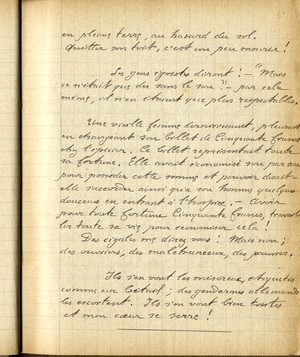 en pleine terre, au hasard du sol.
Quitter son toit, c'est un peu mourir !
Les gens égoïstes diront : - "Mais
ce n'était que des sans le sou" - par cela
même, il n'en étaient que plus respectables.
Une vieille femme pleurant
en changeant son billet de Cinquante francs
chez l'épicier. Ce billet représentait toute
sa fortune. Elle avait économisé sou par sou
pour posséder cette somme et pouvoir
elle ainsi à son homme quelques
douceurs en entrant à l'hospice. - Avoir
pour toute fortune Cinquante francs,
toute sa vie pour économiser cela !
Des cigales me direz vous ! Mais non ;
des ouvriers, des malchanceux, des pauvres.
Ils s'en vont les miséreux,
comme un bétail ; des gendarmes allemands
les escortent. Ils s'en vont bien tristes
et mon cœur se serre !